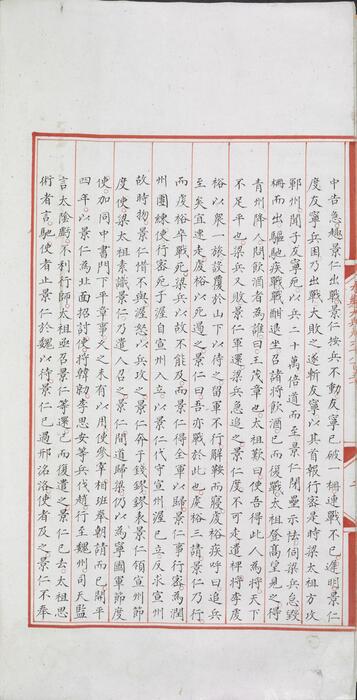 中告急趣景仁出戰景仁按兵不動友寧已破一柵連戰不已遲明景仁
度友寧兵困乃出戰大敗之遂斬友寧以其首報行密是時梁太祖方攻
鄆州聞子友寧死以兵二十萬倍道而至景仁閉壘示怯伺梁兵怠毀
柵而出驅馳疾戰戰酣退坐召諸將飲酒已而復戰太祖登高望見之得
青州降人問飲酒者為誰曰王茂章也太祖歎曰使吾得此人為將天下
不足平也梁兵又敗景仁軍還梁兵急追之景仁度不可走遣裨將李虔
裕以衆一旅設覆於山下以待之留軍不行解鞍而寢虔裕疾呼曰追兵
至矣宜速走虔裕以死遏之景仁曰吾亦戰於此也虔裕三請景仁乃行
而虔裕卒戰死梁兵以故不能及而景仁得全軍以歸景仁事行密為潤
州團練使行密死子渥自宣州入立以景仁代守宣州渥已立反求宣州
故時物景仁惜不與渥怒以兵攻之景仁奔于錢鏐鏐表景仁領宣州節
度使梁太祖素識景仁乃遣人召之景仁間道歸梁仍以為寧國軍節度
使加同中書門下平章事久之未有以用使參宰相班奉朝請而已開平
四年以景仁為北面招討使將韓勍李思安等兵伐趙行至魏州司天監
言太陰虧不利行師太祖亟召景仁等還已而復遣之景仁已去太祖思
術者言馳使者止景仁於魏以待景仁已過邢洺洛使者及之景仁不奉